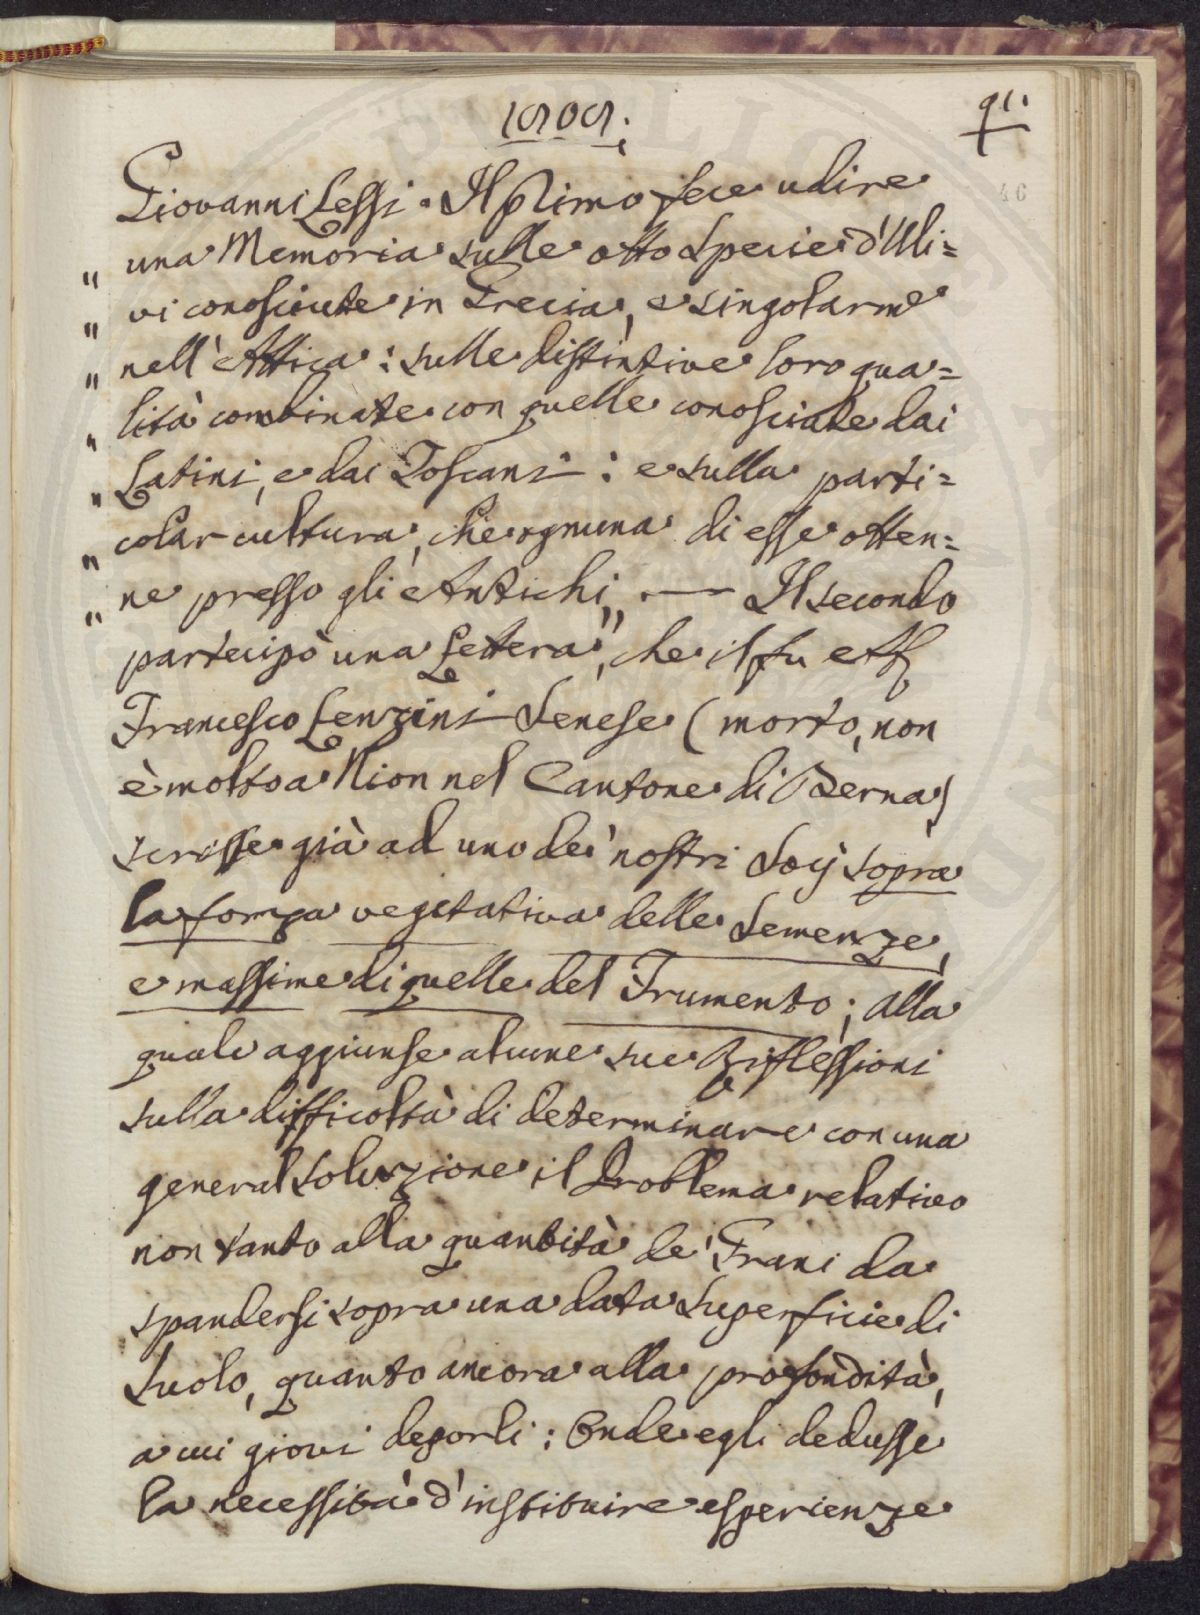 1505.
91.
46
Giovanni Lessi. Il Primo fece udire
„ una Memoria sulle otto Specie d'Uli=
„ vi conosciute in Grecia, e singolarme
„ nell'Attica: sulle distintive loro qua=
„ lità combinate con quelle conosciute dai
„ Latini, e dai Toscani: e sulla parti=
„ colar cultura, che ognuna di esse otten=
„ ne presso gli Antichi„. — Il secondo
partecipò una Lettera, che il fu
Francesco Lenzini Senese (morto, non
è molto a Nion nel Cantone di Berna)
scrisse già ad uno de' nostri Socj sopra
la forza vegetativa delle Semenze,
e massime di quelle del Frumento; alla
quale aggiunse alcune sue Riflessioni
sulla difficoltà di determinare con una
general soluzione il Problema relativo
non tanto alla quantità de' Grani da
spandersi sopra una data Superficie di
Suolo, quanto ancora alla profondità,
a cui giovi deporli: Onde egli dedusse
la necessità d'instituire esperienze